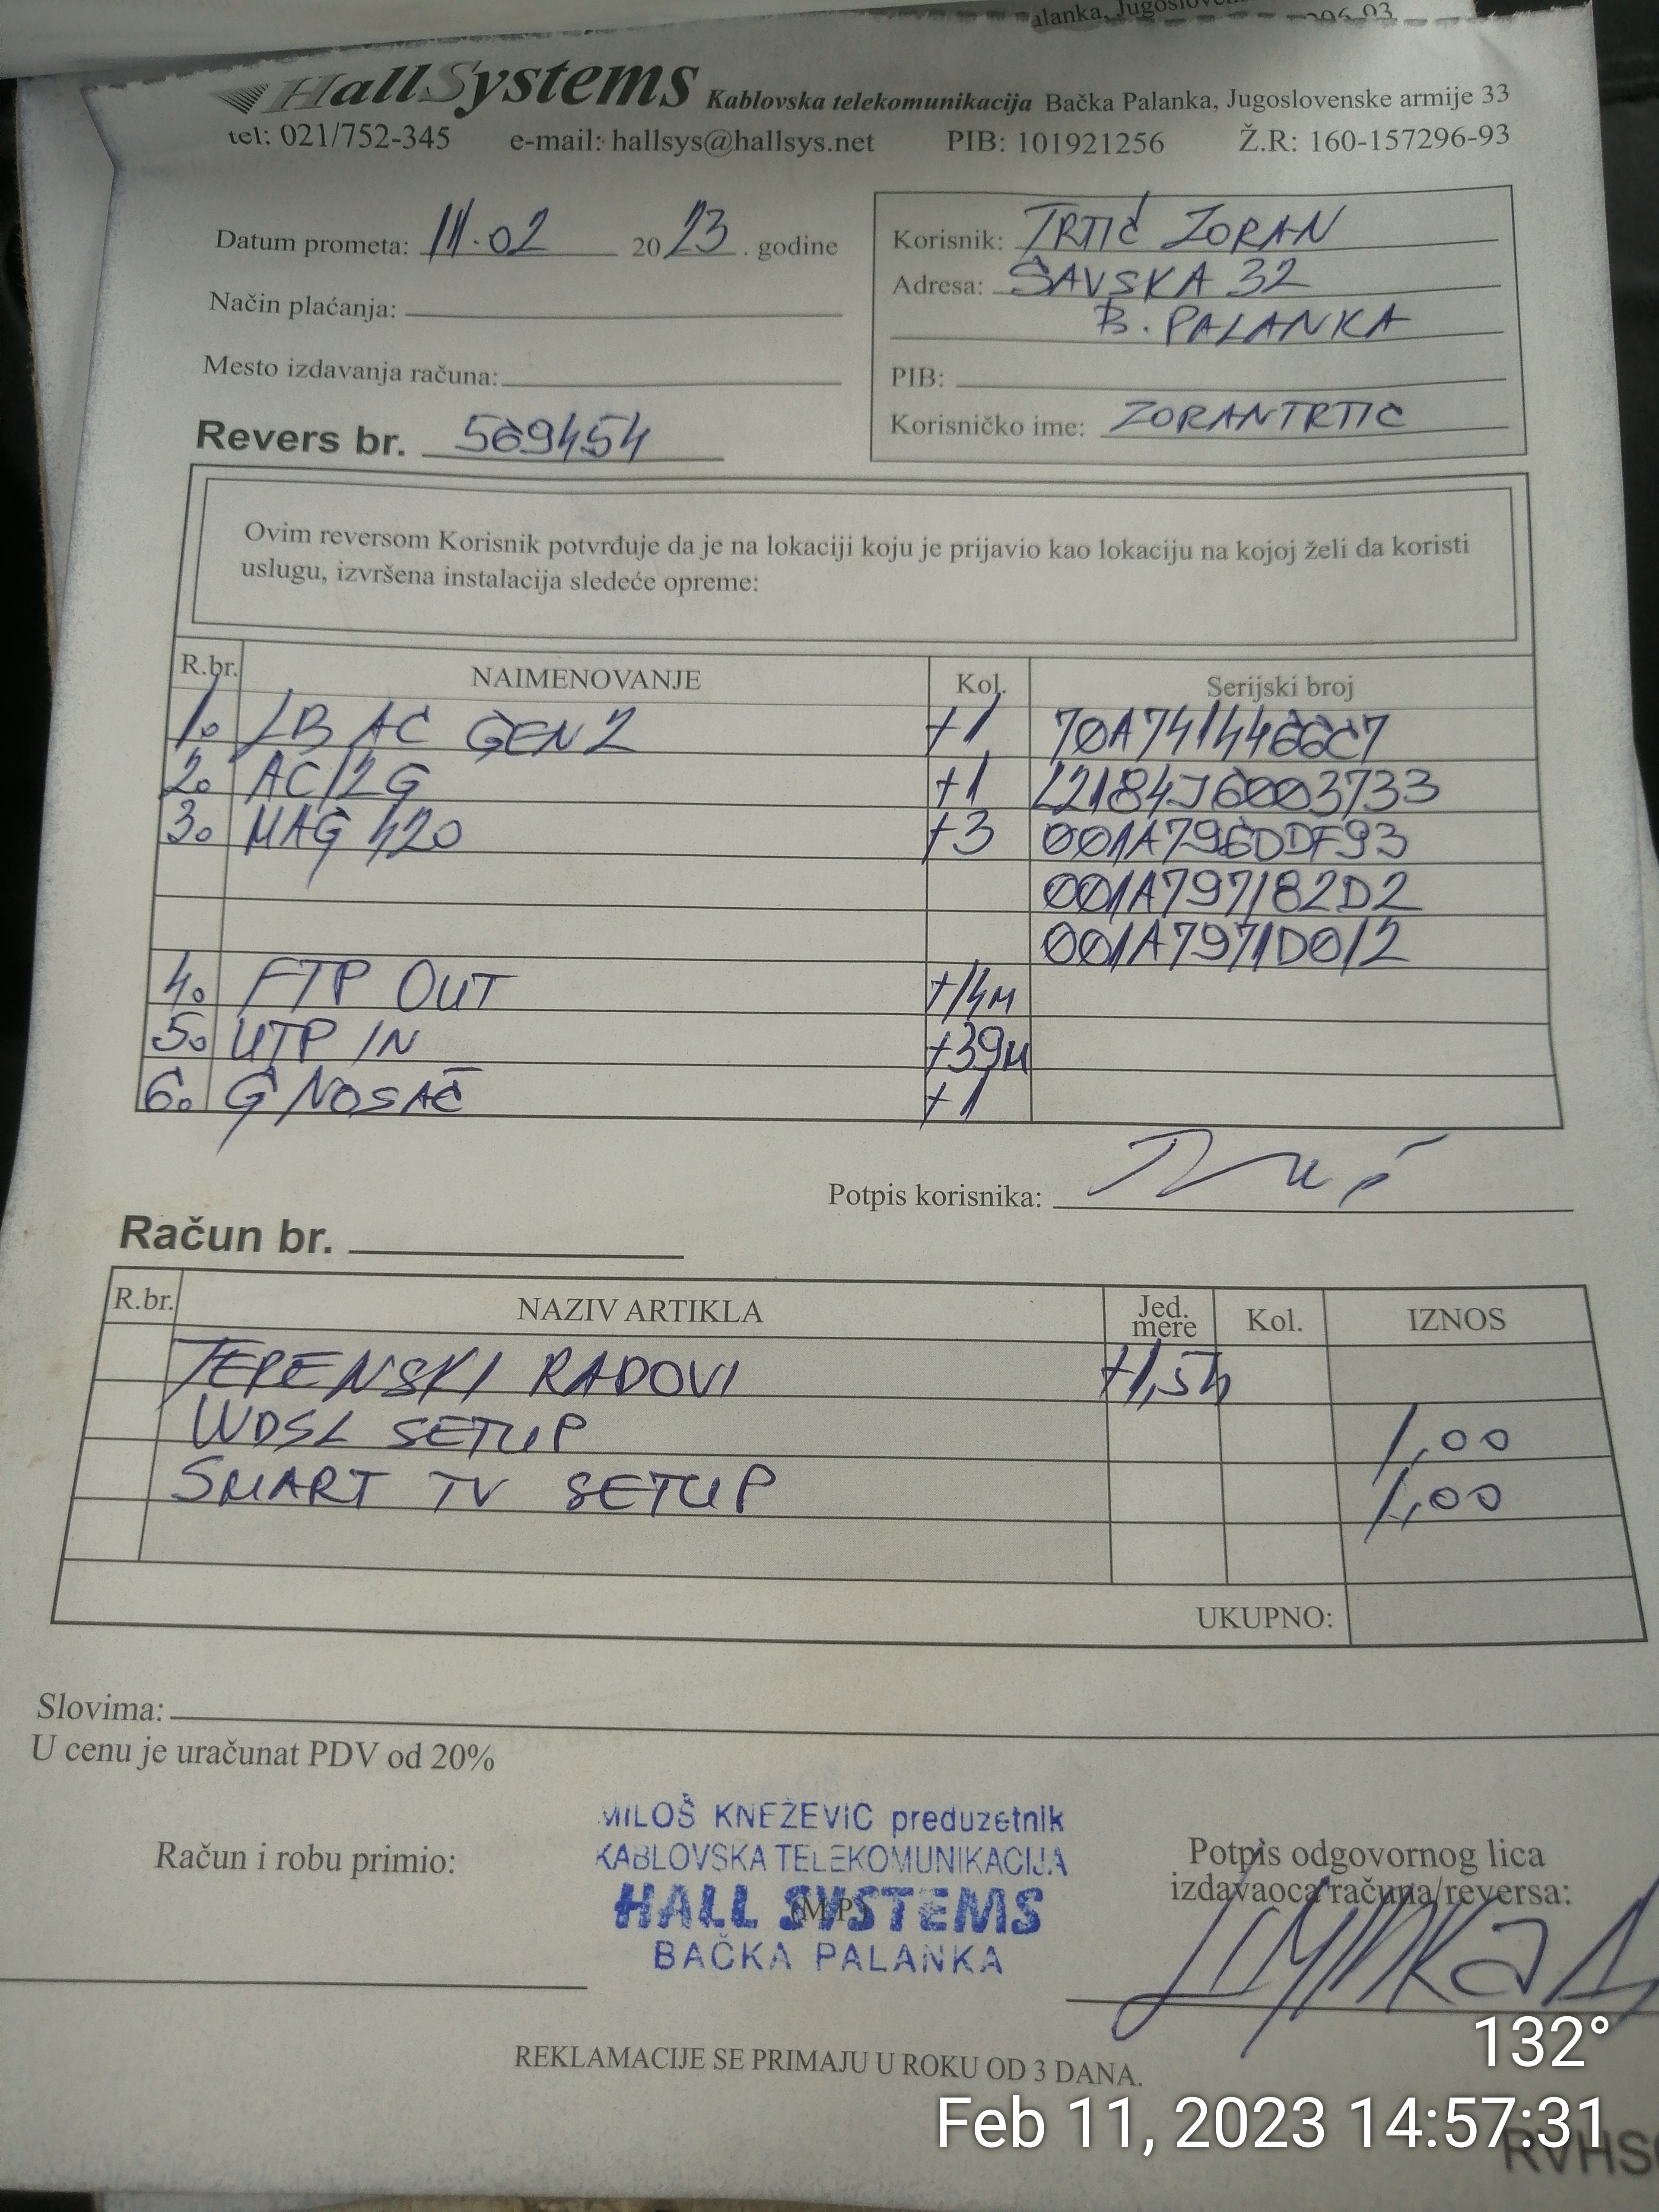 alanka, Jugoslovens
HallSystems Kablovska telekomunikacija Bačka Palanka, Jugoslovenske armije 33
tel: 021/752-345 e-mail: hallsys@hallsys.net PIB: 101921256 Ž.R: 160-157296-93
Datum prometa: 11.02 2023. godine
Način plaćanja:
Mesto izdavanja računa:
Revers br. 569454
Korisnik: TRTIĆ ZORAN
Adresa: SAVSKA 32
B. PALANKA
PIB:
Korisničko ime: ZORANTRTIC
Ovim reversom Korisnik potvrđuje da je na lokaciji koju je prijavio kao lokaciju na kojoj želi da koristi
uslugu, izvršena instalacija sledeće opreme:
R.br. NAIMENOVANJE Kol. Serijski broj
1. LB AC GEN2 +1 70A7414466C7
2. AC12G +1 22184J6003733
3. MAG 420 +3 001A796DDF93
001A797182D2
001A7971D012
4. FTP OUT +14M
5. UTP IN +39M
6. G NOSAČ +1
Potpis korisnika:
Račun br.
R.br. NAZIV ARTIKLA Jed. mere Kol. IZNOS
TEPENSKI RADOVI +1,5h
WDSL SETUP 1,00
SMART TV SETUP 1,00
UKUPNO:
Slovima:
U cenu je uračunat PDV od 20%
MILOŠ KNEŽEVIĆ preduzetnik
KABLOVSKA TELEKOMUNIKACIJA
HALL SYSTEMS
(M.P)
BAČKA PALANKA
Račun i robu primio:
Potpis odgovornog lica
izdavaoca računa/reversa:
REKLAMACIJE SE PRIMAJU U ROKU OD 3 DANA.
132°
Feb 11, 2023 14:57:31
RVHS